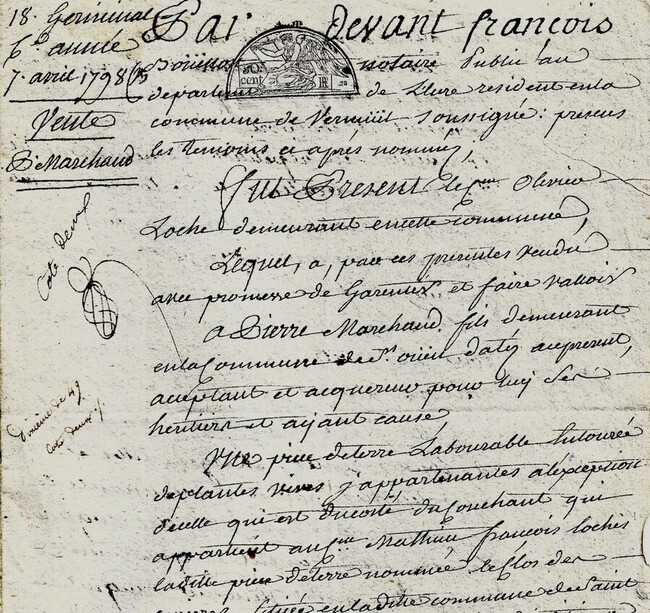 18. Germinal
6e année
7 avril 1798
Vente
P. Marchand
Cote deux
Cote deux
Par devant françois
notaire Public au
departement de Leure resident en la
commune de soussigné: presens
les temoins ci après nommés,
fut Present le cen Olivier
Loche demeurant en cette commune,
Lequel, a, par ces presentes vendu
avec promesse de Garentir et faire valloir
a Pierre Marchand. fils demeurant
en la Commune de St ouen dattez ace present,
acceptant et acquereur pour luy ses
heritiers et ayant cause
Une piece de terre Labourable Entourée
de plantes vives y appartenantes alexception
decelle qui est ducosté du Couchant qui
appartient au cen Mathieu francois Loches
ladite piece de terre nommée le Clos des
située en ladite commune de Saint
cent